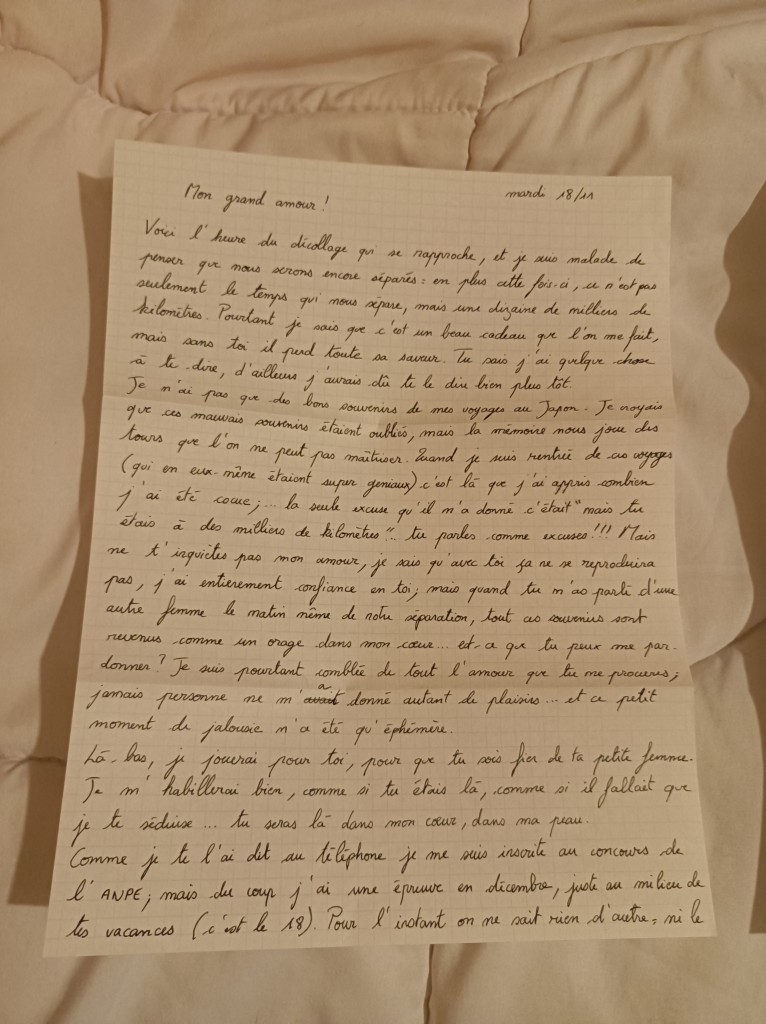 mardi 18/11
Mon grand amour !
Voici l'heure du décollage qui se rapproche, et je suis malade de
penser que nous serons encore séparés : en plus cette fois-ci, ce n'est pas
seulement le temps qui nous sépare, mais une dizaine de milliers de
kilomètres. Pourtant je sais que c'est un beau cadeau que l'on me fait,
mais sans toi il perd toute sa saveur. Tu sais j'ai quelque chose
à te dire, d'ailleurs j'aurais dû te le dire bien plus tôt.
Je n'ai pas que des bons souvenirs de mes voyages au Japon. Je croyais
que ces mauvais souvenirs étaient oubliés, mais la mémoire nous joue des
tours que l'on ne peut pas maîtriser. Quand je suis rentrée de ces voyages
(qui en eux-même étaient super géniaux) c'est là que j'ai appris combien
j'ai été cocue ;... la seule excuse qu'il m'a donné c'était "mais tu
étais à des milliers de kilomètres".. tu parles comme excuses !!! Mais
ne t'inquiètes pas mon amour, je sais qu'avec toi ça ne se reproduira
pas, j'ai entièrement confiance en toi ; mais quand tu m'as parlé d'une
autre femme le matin même de notre séparation, tout ces souvenirs sont
revenus comme un orage dans mon cœur... est-ce que tu peux me par-
donner ? Je suis pourtant comblée de tout l'amour que tu me procures ;
jamais personne ne m'a donné autant de plaisirs ... et ce petit
moment de jalousie n'a été qu'éphémère.
Là-bas, je jouerai pour toi, pour que tu sois fier de ta petite femme.
Je m'habillerai bien, comme si tu étais là, comme si il fallait que
je te séduise ... tu seras là dans mon cœur, dans ma peau.
Comme je te l'ai dit au téléphone je me suis inscrite au concours de
l'ANPE ; mais du coup j'ai une épreuve en décembre, juste au milieu de
tes vacances (c'est le 18). Pour l'instant on ne sait rien d'autre : ni le